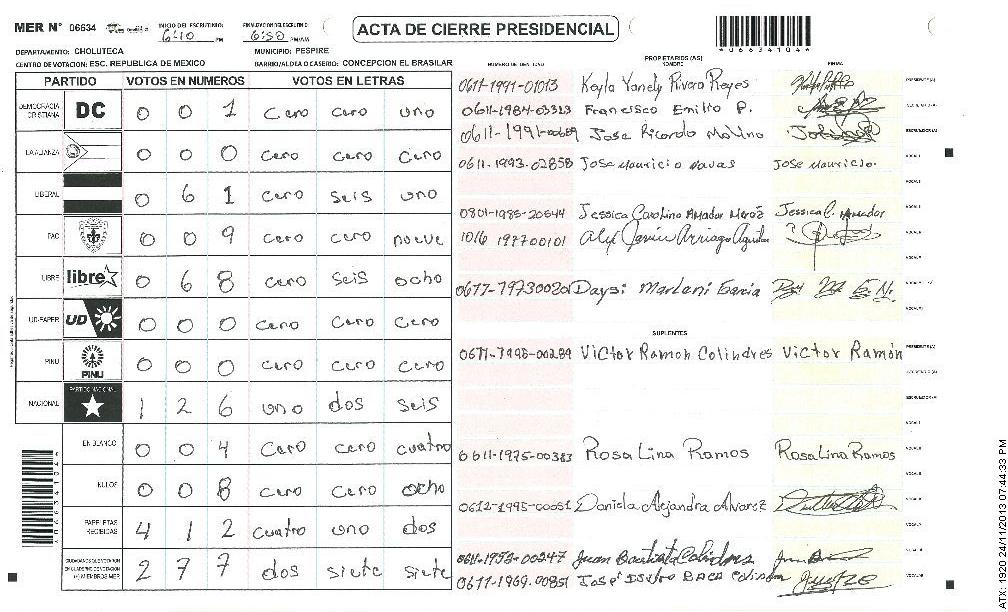 MER N° 06634 INICIO DEL ESCRUTINIO: 6:10 PM FINALIZACION DEL ESCRUTINIO: 6:50 PM/AM ACTA DE CIERRE PRESIDENCIAL
DEPARTAMENTO: CHOLUTECA MUNICIPIO: PESPIRE
CENTRO DE VOTACION: ESC. REPUBLICA DE MEXICO BARRIO/ALDEA O CASERIO: CONCEPCION EL BRASILAR
PARTIDO VOTOS EN NUMEROS VOTOS EN LETRAS
DEMOCRACIA CRISTIANA DC 0 0 1 Cero cero uno
LA ALIANZA 0 0 0 cero cero cero
LIBERAL 0 6 1 cero seis uno
PAC 0 0 9 cero cero nueve
LIBRE libre 0 6 8 cero seis ocho
UD-FAPER UD 0 0 0 cero cero cero
PINU PINU 0 0 0 cero cero cero
NACIONAL PARTIDO NACIONAL 1 2 6 uno dos seis
EN BLANCO 0 0 4 cero cero cuatro
NULOS 0 0 8 cero cero ocho
PAPELETAS RECIBIDAS 4 1 2 cuatro uno dos
CIUDADANOS QUE VOTARON EN CUADERNO DE VOTACION (+) MIEMBROS MER 2 7 7 dos siete siete
PROPIETARIOS (AS)
NUMERO DE IDENTIDAD NOMBRE FIRMA
0611-1991-01013 Keyla Yanely Rivera Reyes PRESIDENTE(A)
0611-1984-03313 Francisco Emilio P. SECRETARIO(A)
0611-1991-00689 Jose Ricardo Molino ESCRUTADOR(A)
0611-1993-02858 Jose Mauricio Navas Jose Mauricio. VOCAL I
0801-1985-20544 Jessica Carolina Amador Jessica C. Amador
1016 199700101 Alex Javier Arriaga Aguilar
Daysi Marleni Garcia
SUPLENTES
Victor Ramon Colindres Victor Ramón PRESIDENTE(A)
SECRETARIO(A)
ESCRUTADOR(A)
0611-1975-00383 Rosa Lina Ramos Rosa Lina Ramos
0612-1995-00051 Daniela Alejandra Alvarez
0611-1952-00247 Juan Bautista Colindres
0611-1969-00851 Jose Isidro BACA Colindres
ATX: 1920 24/11/2013 07:44:33 PM